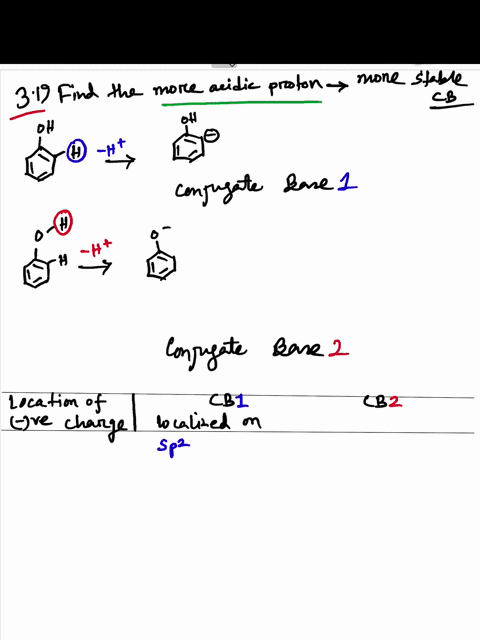 3.19) Find the more acidic proton → more stable
CB
OH
H
-H+
OH
⊖
Conjugate Base 1
O
H
H
-H+
O-
Conjugate Base 2
Location of
(-)ve charge
CB1
localized on
sp2
CB2